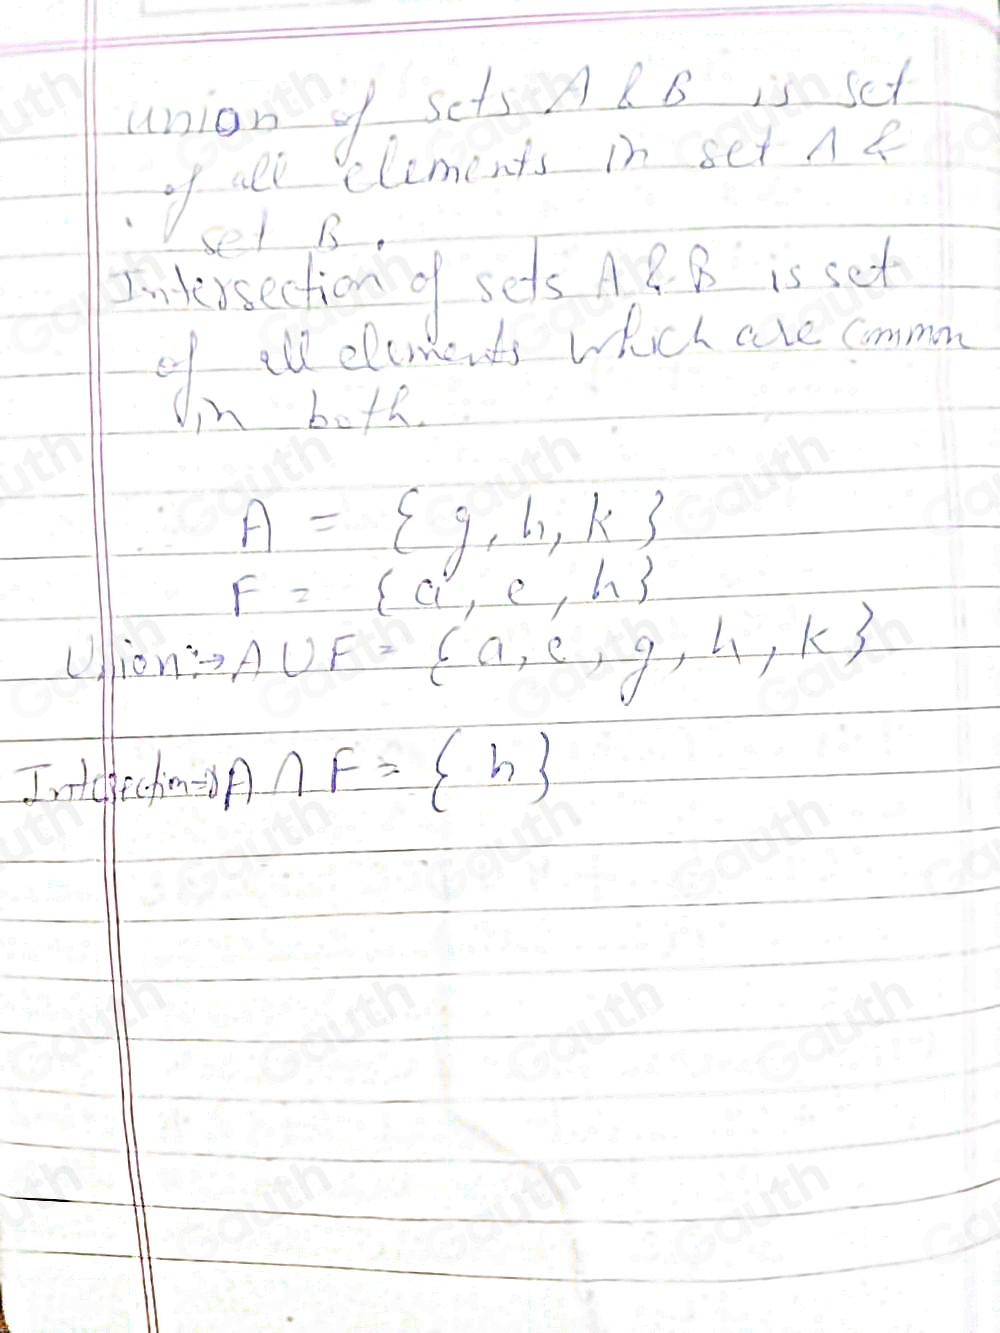 union of sets A & B is set
of all elements in set A &
set B.
Intersection of sets A & B is set
of all elements which are common
in both.
A = {g, h, k}
F = {a, e, h}
Union:→ A ∪ F = {a, e, g, h, k}
Intersection⇒ A ∩ F = {h}